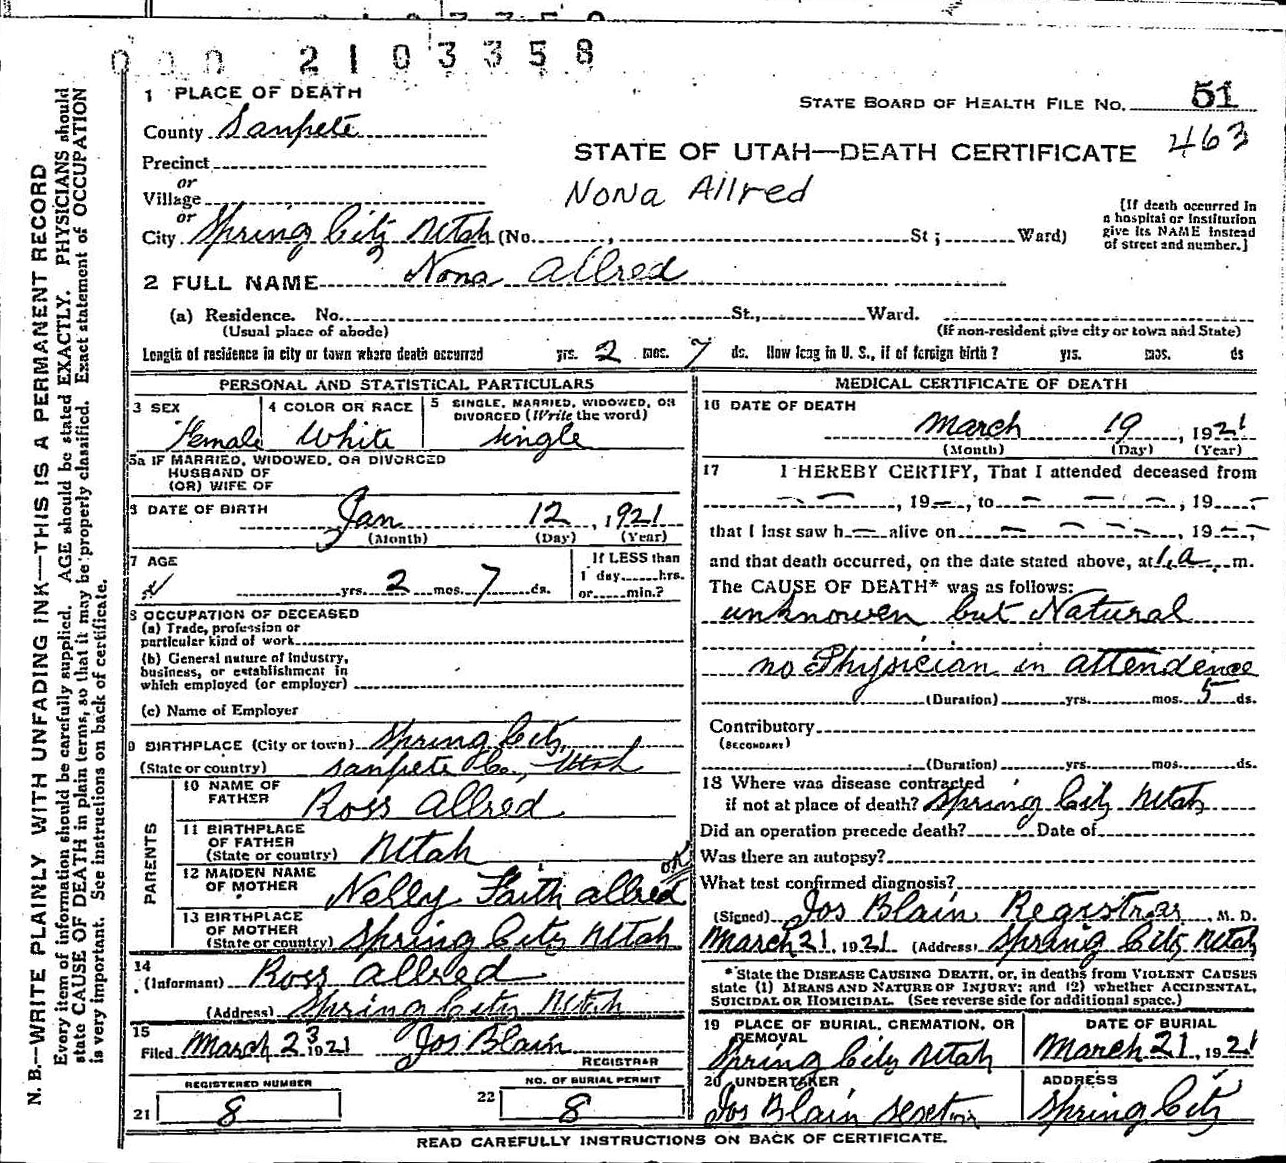 000 2103358
1 PLACE OF DEATH
STATE BOARD OF HEALTH FILE NO. 51
County Sanpete
463
STATE OF UTAH—DEATH CERTIFICATE
Precinct
or
Village
Nona Allred
or
City Spring City Utah (No. , St; Ward)
[If death occurred in
a hospital or institution
give its NAME instead
of street and number.]
2 FULL NAME Nona Allred
(a) Residence. No. St., Ward.
(Usual place of abode) (If non-resident give city or town and State)
Length of residence in city or town where death occurred yrs. 2 mos. 7 ds. How long in U. S., if of foreign birth? yrs. mos. ds
PERSONAL AND STATISTICAL PARTICULARS
3 SEX Female
4 COLOR OR RACE White
5 SINGLE, MARRIED, WIDOWED, OR
DIVORCED (Write the word)
single
5a IF MARRIED, WIDOWED, OR DIVORCED
HUSBAND OF
(OR) WIFE OF
6 DATE OF BIRTH
Jan 12, 1921
(Month) (Day) (Year)
7 AGE
yrs. 2 mos. 7 ds.
If LESS than
1 day hrs.
or min.?
8 OCCUPATION OF DECEASED
(a) Trade, profession or
particular kind of work
(b) General nature of industry,
business, or establishment in
which employed (or employer)
(c) Name of Employer
9 BIRTHPLACE (City or town) Spring City,
(State or country) Sanpete Co., Utah
PARENTS
10 NAME OF
FATHER Ross Allred
11 BIRTHPLACE
OF FATHER
(State or country) Utah
12 MAIDEN NAME
OF MOTHER Nelly Faith Allred OK
13 BIRTHPLACE
OF MOTHER
(State or country) Spring City Utah
14
(Informant) Ross Allred
(Address) Spring City Utah
15
Filed March 23 1921 Jos Blain
REGISTRAR
REGISTERED NUMBER
21 8
NO. OF BURIAL PERMIT
22 8
MEDICAL CERTIFICATE OF DEATH
16 DATE OF DEATH
March 19, 1921
(Month) (Day) (Year)
17 I HEREBY CERTIFY, That I attended deceased from
— —, 19—, to — — — —, 19—
that I last saw h— alive on — — — —, 19—
and that death occurred, on the date stated above, at 1.a. m.
The CAUSE OF DEATH* was as follows:
unknowen but Natural
no Physician in attendence
(Duration) yrs. mos. 5 ds.
Contributory
(SECONDARY)
(Duration) yrs. mos. ds.
18 Where was disease contracted
if not at place of death? Spring City Utah
Did an operation precede death? Date of
Was there an autopsy?
What test confirmed diagnosis?
(Signed) Jos Blain Registrar, M. D.
March 21, 1921 (Address) Spring City Utah
*State the DISEASE CAUSING DEATH, or, in deaths from VIOLENT CAUSES
state (1) MEANS AND NATURE OF INJURY; and (2) whether ACCIDENTAL,
SUICIDAL OR HOMICIDAL. (See reverse side for additional space.)
19 PLACE OF BURIAL, CREMATION, OR
REMOVAL
Spring City Utah
DATE OF BURIAL
March 21, 1921
20 UNDERTAKER
Jos Blain
ADDRESS
Spring City
READ CAREFULLY INSTRUCTIONS ON BACK OF CERTIFICATE.
N. B.—WRITE PLAINLY WITH UNFADING INK—THIS IS A PERMANENT RECORD
Every item of information should be carefully supplied. AGE should be stated EXACTLY. PHYSICIANS should
state CAUSE OF DEATH in plain terms, so that it may be properly classified. Exact statement of OCCUPATION
is very important. See instructions on back of certificate.